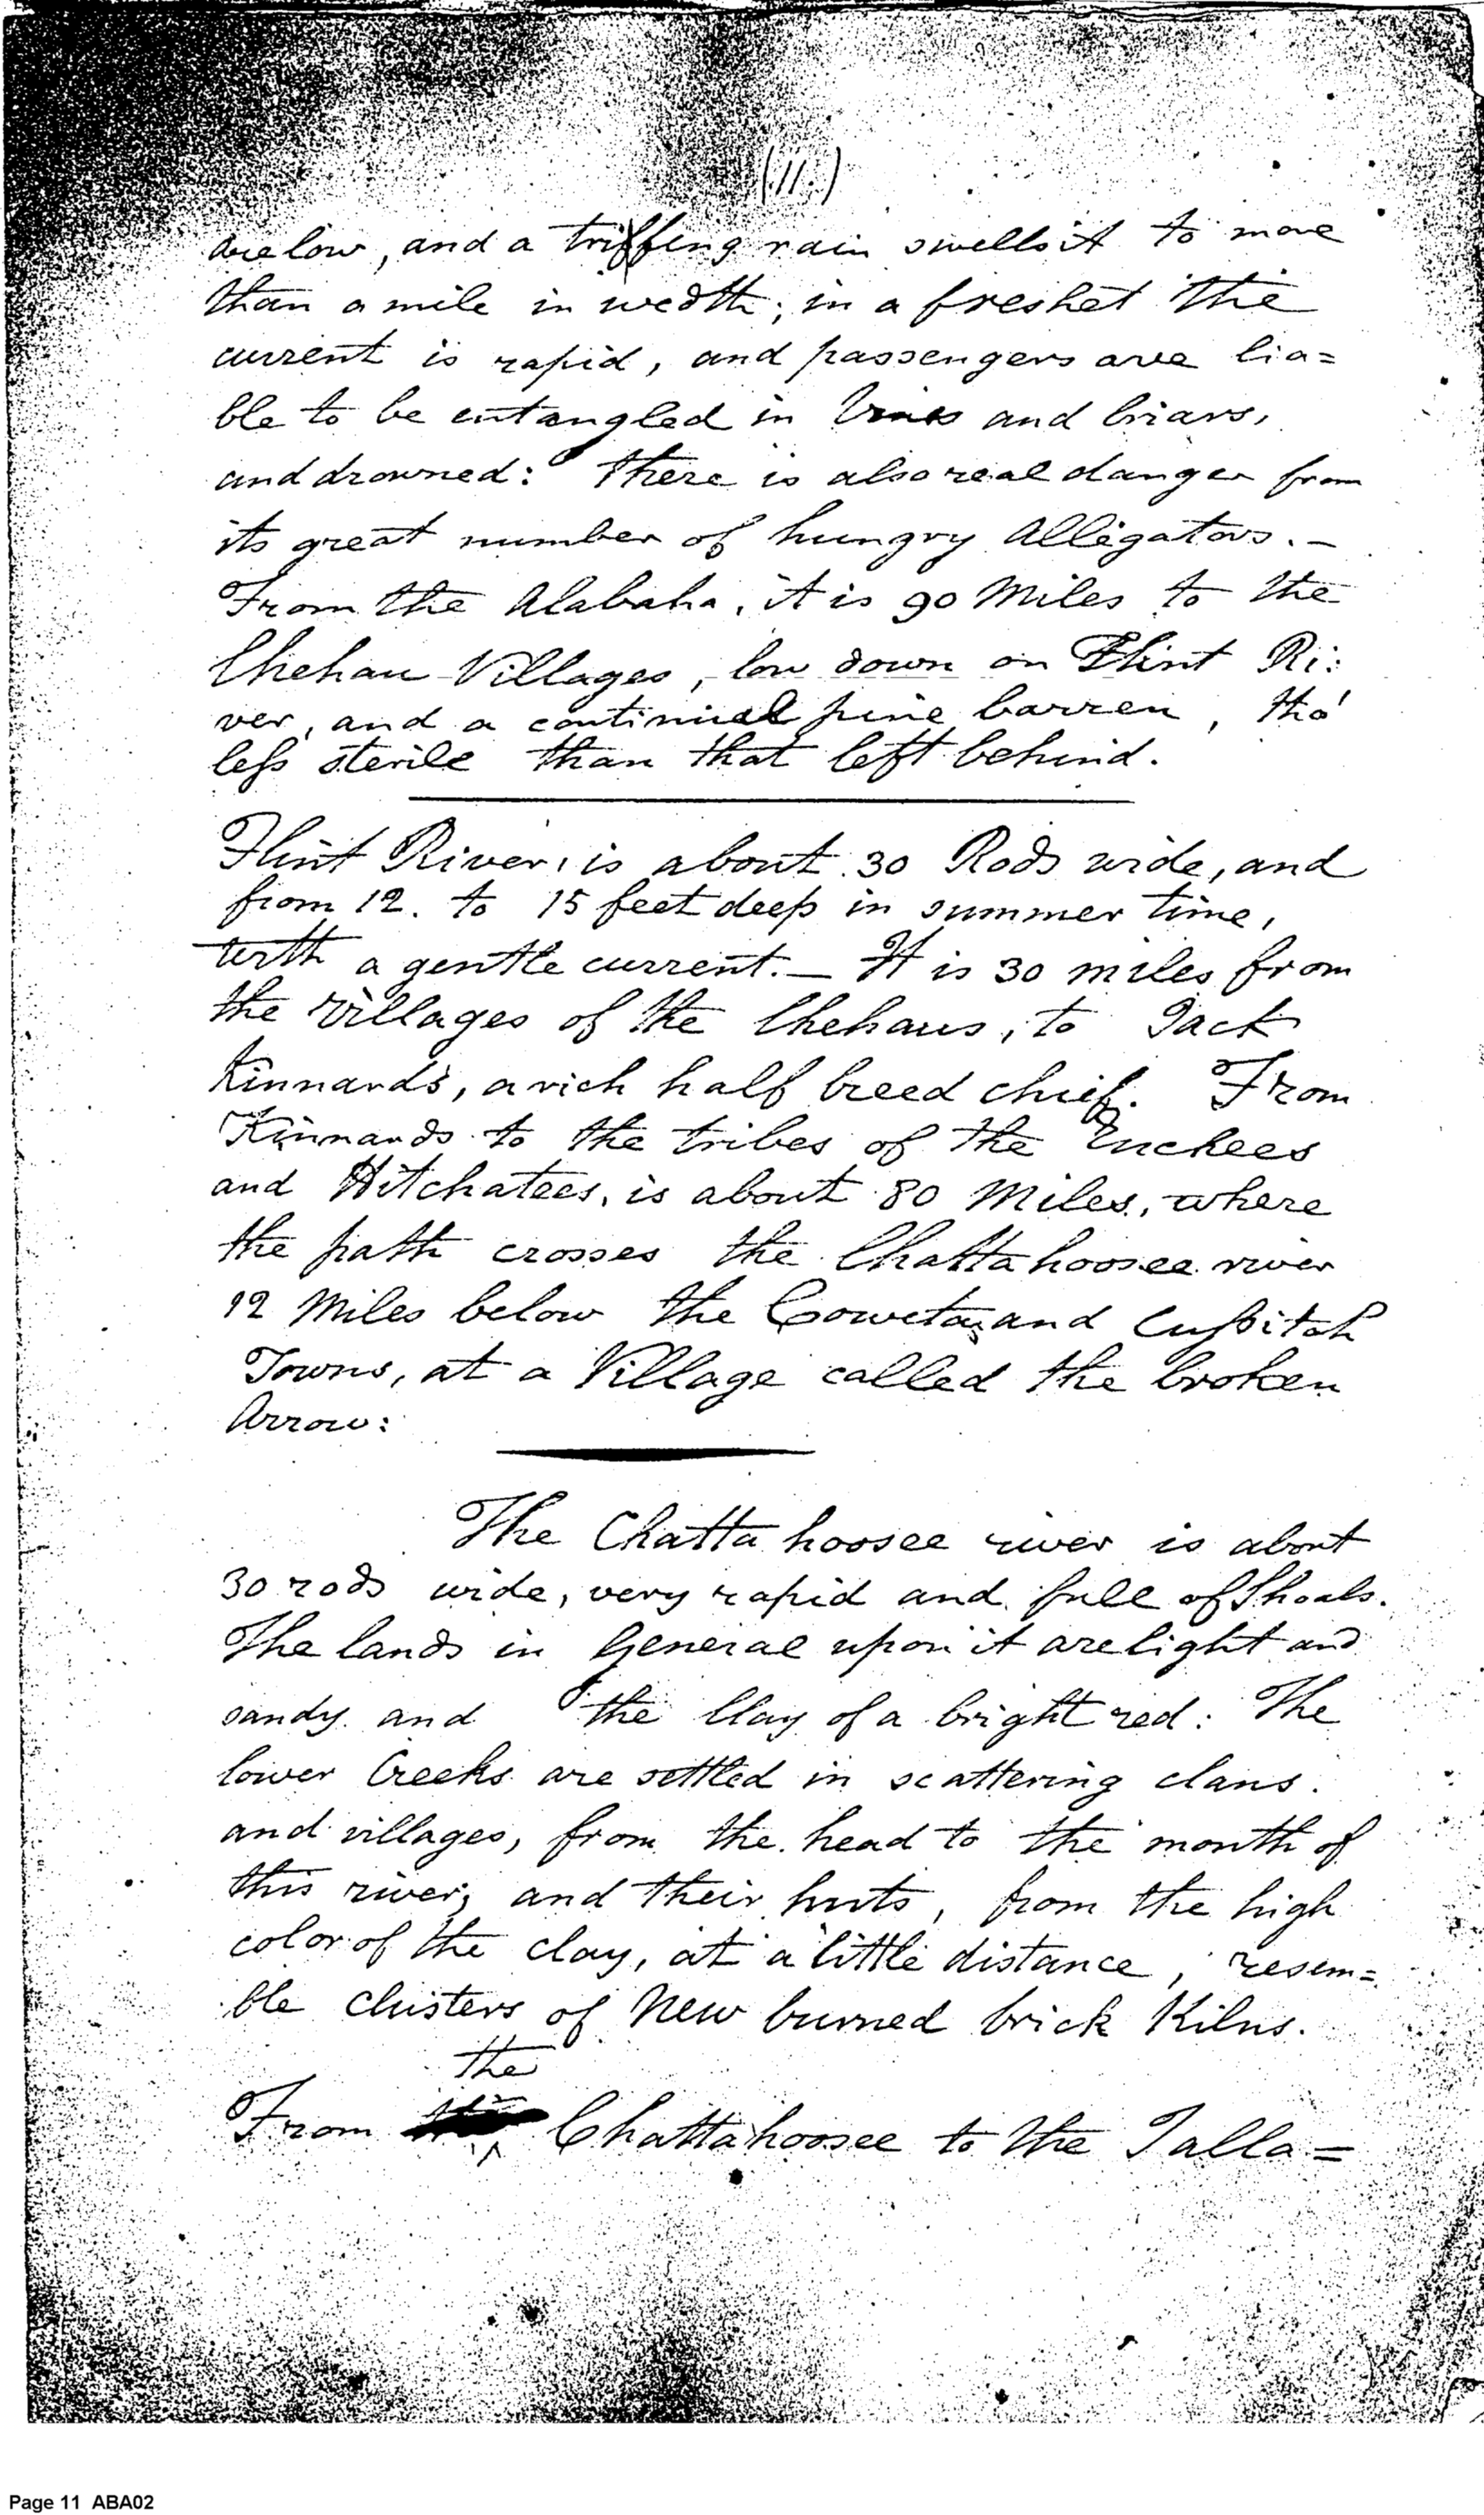 (11.)
are low, and a trifling rain swells it to more
than a mile in wedth; in a freshet the
current is rapid, and passengers are lia=
ble to be entangled in Vines and briars,
and drowned: there is also real danger from
its great number of hungry Alligators. —
From the Alabaha, it is 90 Miles to the
Chehau Villages, low down on Flint Ri:
ver, and a continual pine barren, tho'
less sterile than that left behind.
Flint River, is about 30 Rods wide, and
from 12. to 15 feet deep in summer time,
with a gentle current. — It is 30 miles from
the Villages of the Chehaus, to Jack
Kinnard's, a rich half breed chief. From
Kinnards to the tribes of the Euchees
and Hitchatees, is about 80 Miles, where
the path crosses the Chattahoosee river
12 Miles below the Cowetas, and Cussitah
Towns, at a Village called the broken
Arrow:
The Chattahoosee river is about
30 rods wide, very rapid and full of Shoals.
The lands in General upon it are light and
sandy and the Clay of a bright red: The
lower Creeks are settled in scattering clans.
and villages, from the head to the mouth of
this river; and their huts, from the high
color of the clay, at a little distance, resem=
ble clusters of New burned brick Kilns.
the
From Chattahoosee to the Talla=
Page 11 ABA02